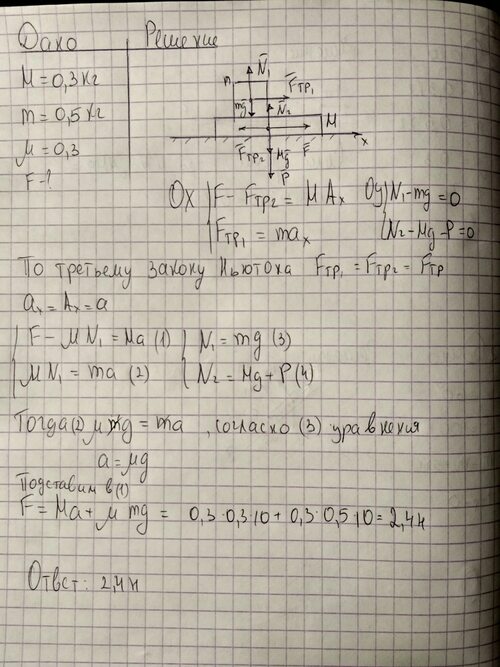 Дано Решение
M = 0,3 кг
m = 0,5 кг
μ = 0,3
F - ?
N̄₁
m
F̄тр₁
mḡ
N̄₂
M
F̄тр₂
Mḡ
F̄
x
P
OX { F - Fтр₂ = M Aₓ Oy { N₁ - mg = 0
Fтр₁ = maₓ N₂ - Mg - P = 0
По третьему закону Ньютона Fтр₁ = Fтр₂ = Fтр
aₓ = Aₓ = a
{ F - μ N₁ = Ma (1) { N₁ = mg (3)
μ N₁ = ma (2) N₂ = Mg + P (4)
Тогда (2) μ mg = ma , согласно (3) уравнения
a = μg
Подставим в (1)
F = Ma + μ mg = 0,3·0,3·10 + 0,3·0,5·10 = 2,4н
Ответ: 2,4н